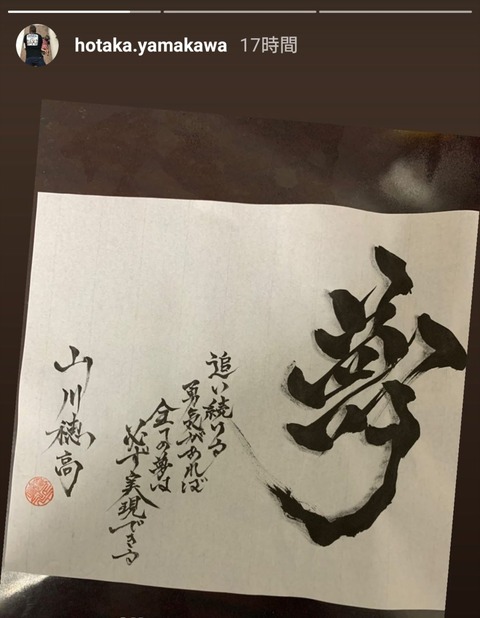 hotaka.yamakawa 17時間
夢
追い続ける
勇気があれば
全ての夢は
必ず実現できる
山川穂高